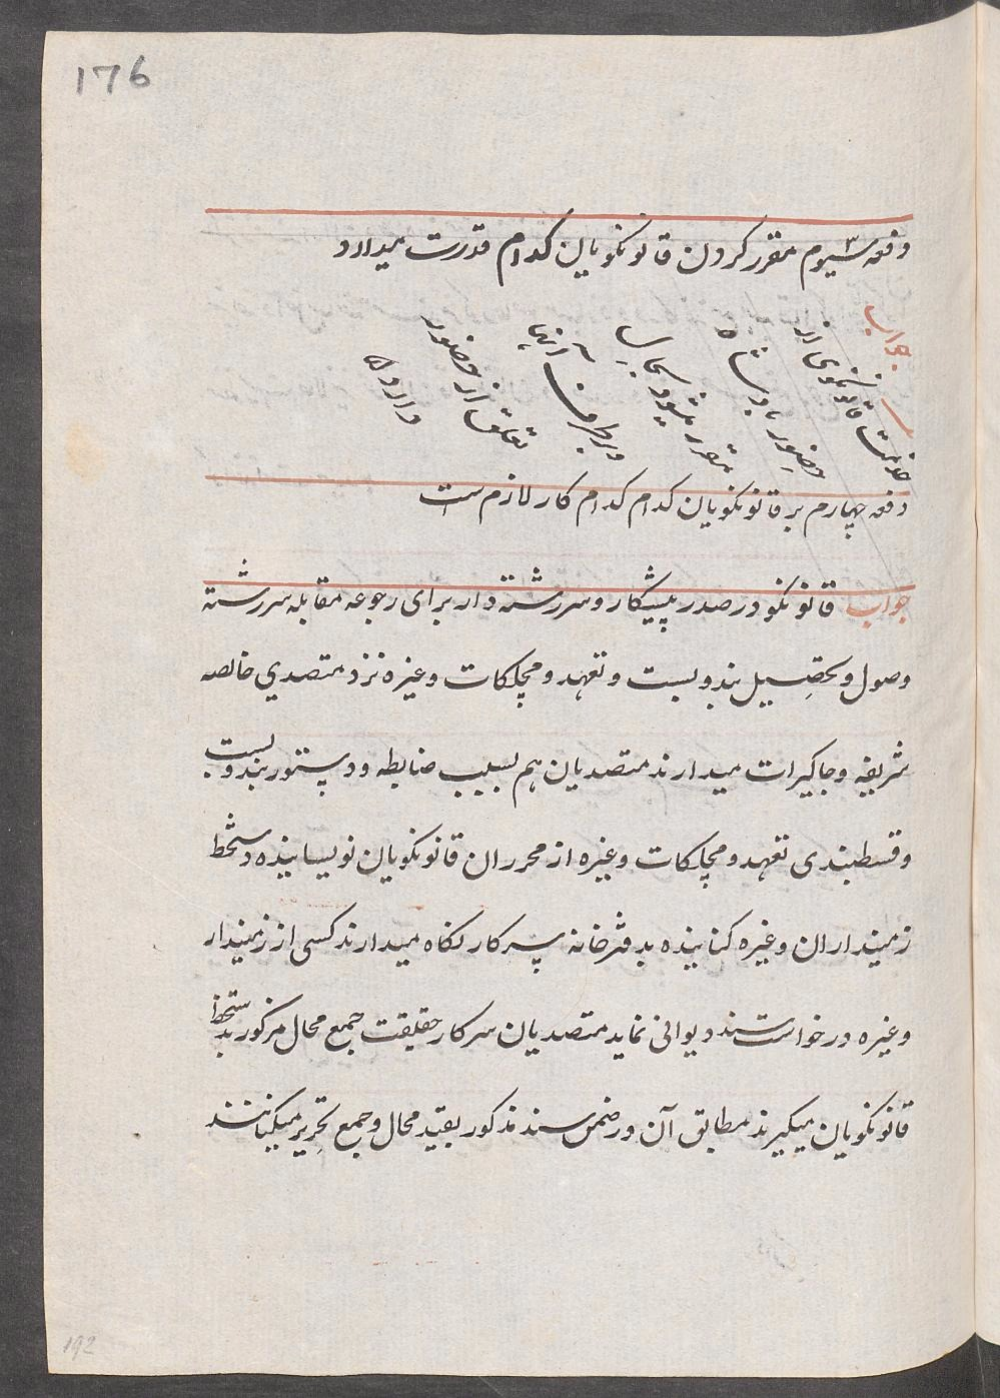 176
دفعه سیوم مقرر کردن قانونکویان کدام قدرت میدارد
جواب
خدمت قانونکوی از
حضور بادشاه
مقرر میشود بحالی
و برطرف آنها
تعلق از حضور
دارد
دفعه چهارم بر قانونکویان کدام کدام کار لازم است
جواب قانونکو در صدر پیشکار و سررشته دار برای رجوعه مقابله سررشته
وصول و تحصیل بندوبست و تعهد و مچلکات وغیره نزد متصدي خالصه
شریفه و جاکیرات میدارند متصدیان هم بسبب ضابطه و دستور بندوبست
و قسطبندی تعهد و مچلکات وغیره از محرران قانونکویان نویسانیده دستخط
زمینداران وغیره کنانیده بدفترخانه سرکار نکاه میدارند کسی از زمیندار
وغیره درخواست سند دیوانی نماید متصدیان سرکار حقیقت جمع محال مزکور بدستخط
قانونکویان میکیرند مطابق آن در ضمن سند مذکور بقید محال و جمع تحریر میکنانند
192